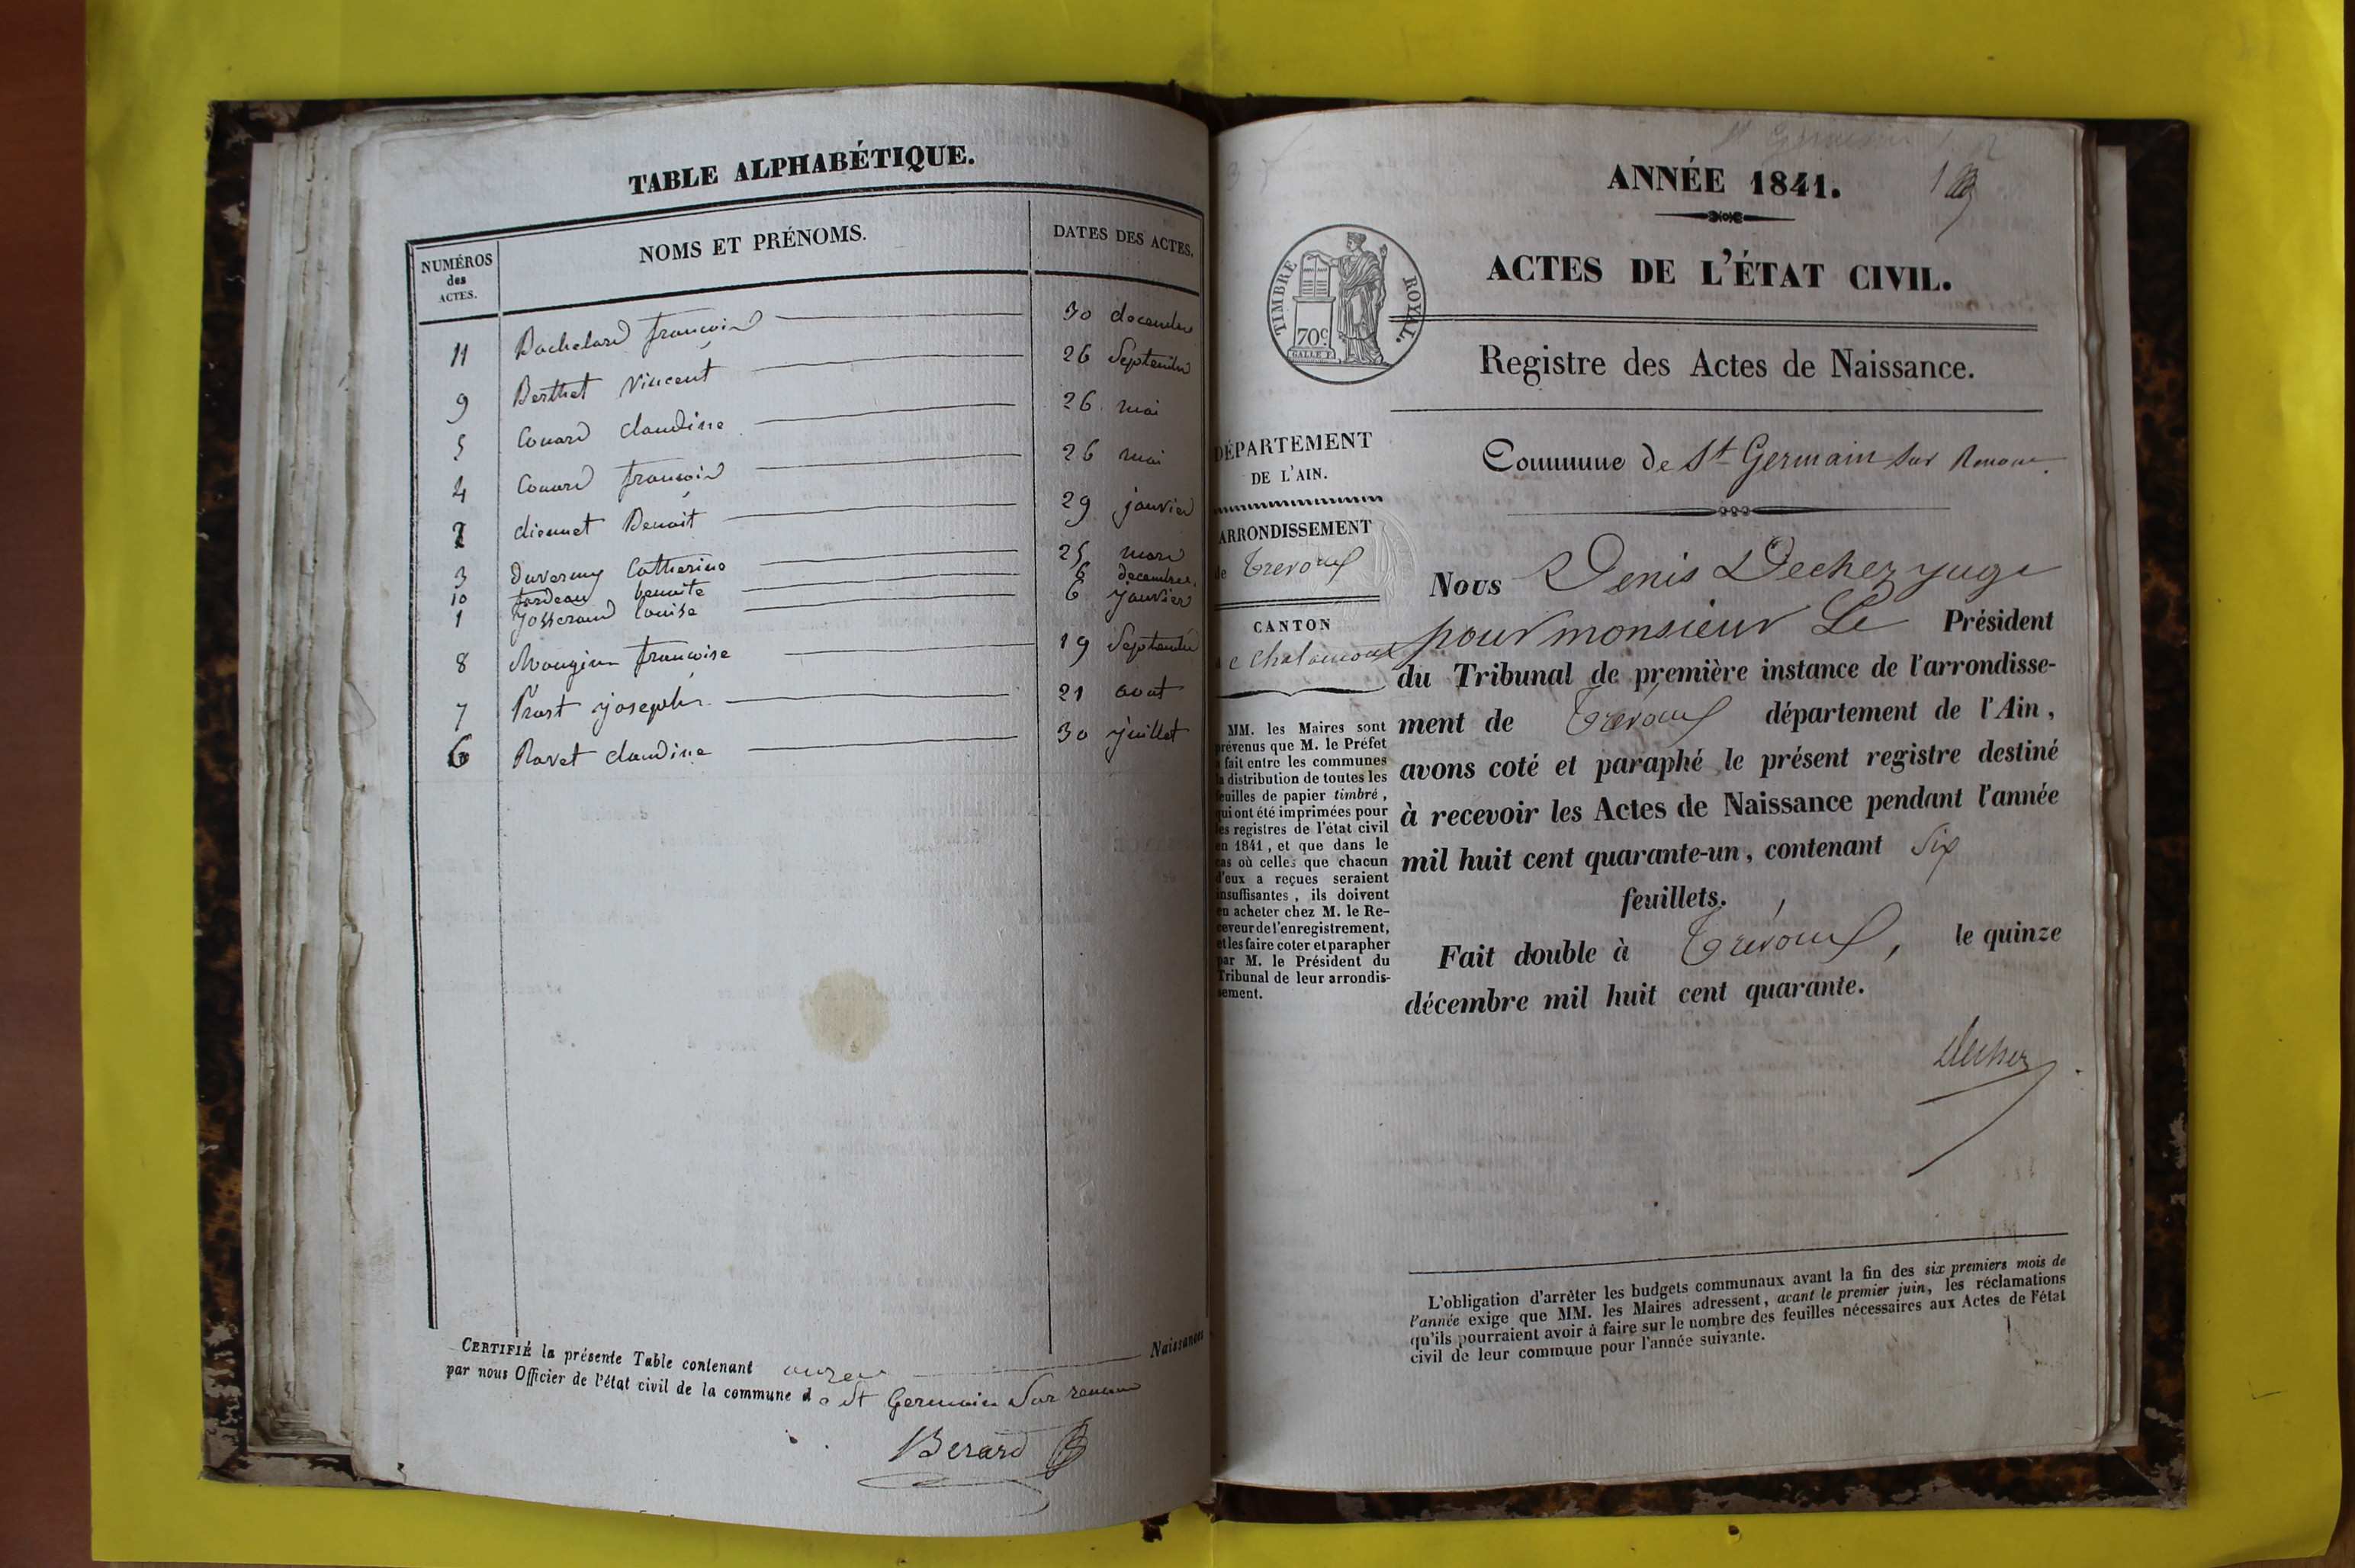 TABLE ALPHABÉTIQUE.
NUMÉROS des ACTES.
NOMS ET PRÉNOMS.
DATES DES ACTES.
11 Bachelard françois 30 decembre
9 Berthet Vincent 26 Septembre
5 Couard claudine 26 mai
4 Couard françois 26 mai
2 Benoit 29 janvier
3 Duvernay Catherine 25 mars
10 fordeau benoite 6 decembre
1 josserand louise 6 janvier
8 Mougin francoise 19 Septembre
7 Prost joseph 21 aout
6 Ravet claudine 30 juillet
CERTIFIÉ la présente Table contenant onze Naissances
par nous Officier de l'état civil de la commune de St Germain Sur renom
Berard
ANNÉE 1841.
1
TIMBRE ROYAL.
70c
ACTES DE L'ÉTAT CIVIL.
Registre des Actes de Naissance.
DÉPARTEMENT
DE L'AIN.
ARRONDISSEMENT
de Trevoux
CANTON
de Chalamont
MM. les Maires sont
prévenus que M. le Préfet
a fait entre les communes
la distribution de toutes les
feuilles de papier timbré,
qui ont été imprimées pour
les registres de l'état civil
en 1841, et que dans le
cas où celles que chacun
d'eux a reçues seraient
insuffisantes, ils doivent
en acheter chez M. le Re-
ceveur de l'enregistrement,
et les faire coter et parapher
par M. le Président du
Tribunal de leur arrondis-
sement.
Commune de St Germain sur Renom.
Nous Denis Dechez juge
pour monsieur Le Président
du Tribunal de première instance de l'arrondisse-
ment de Trévoux département de l'Ain,
avons coté et paraphé le présent registre destiné
à recevoir les Actes de Naissance pendant l'année
mil huit cent quarante-un, contenant Six
feuillets.
Fait double à Trévoux, le quinze
décembre mil huit cent quarante.
Dechez
L'obligation d'arrêter les budgets communaux avant la fin des six premiers mois de
l'année exige que MM. les Maires adressent, avant le premier juin, les réclamations
qu'ils pourraient avoir à faire sur le nombre des feuilles nécessaires aux Actes de l'état
civil de leur commune pour l'année suivante.